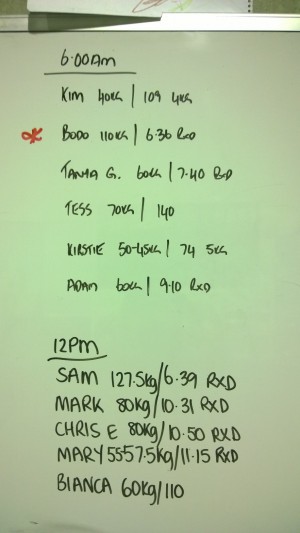 6:00AM
KIM 40KG | 109 4KG
BODO 110KG | 6.36 RXD
TANYA G. 60KG | 7.40 RXD
TESS 70KG | 140
KIRSTIE 50-45KG | 74 5KG
ADAM 60KG | 9.10 RXD
12PM
SAM 127.5kg/6.39 RXD
MARK 80kg/10.31 RXD
CHRIS E 80kg/10.50 RXD
MARY 5557.5kg/11.15 RXD
BIANCA 60kg/110